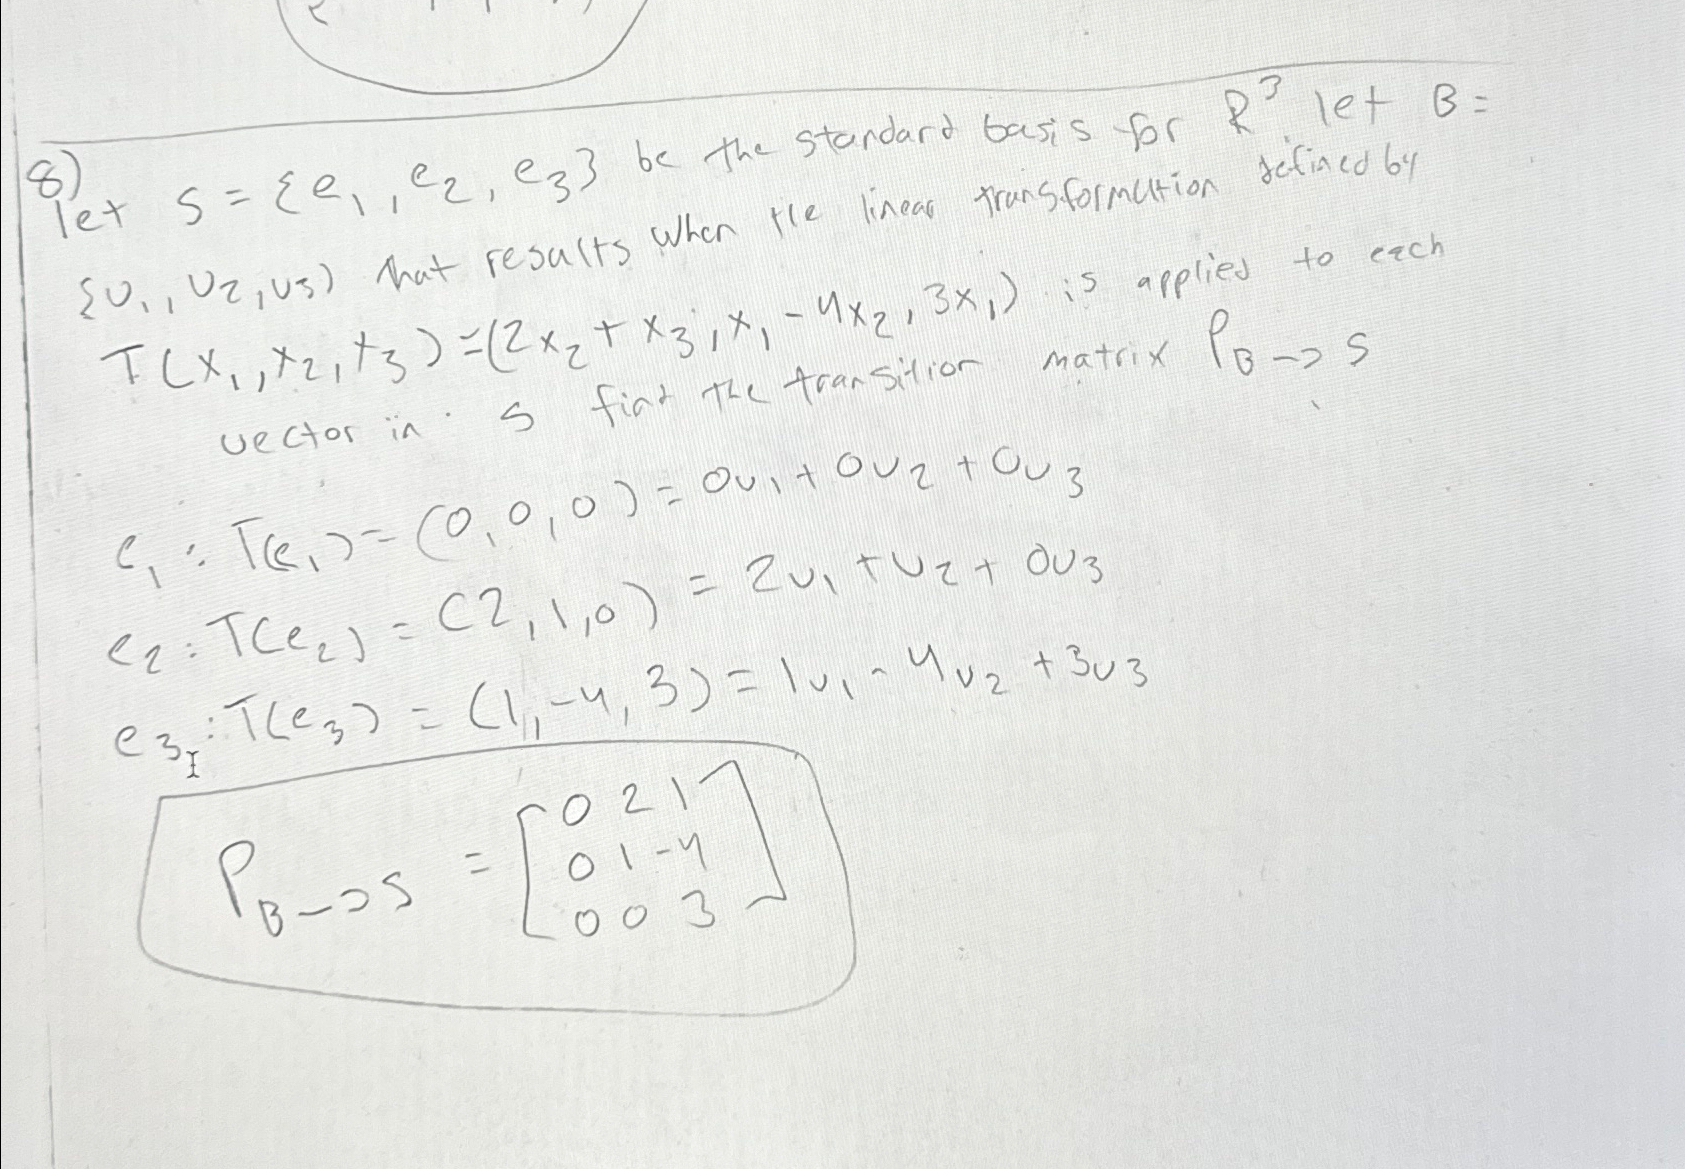 8)
let S = {e1, e2, e3} be the standard basis for R^3. let B =
{v1, v2, v3) that results when the linear transformation defined by
T(x1, x2, x3) = (2x2 + x3, x1 - 4x2, 3x1) is applied to each
vector in S find the transition matrix P B->S
e1 : T(e1) = (0, 0, 0) = 0v1 + 0v2 + 0v3
e2 : T(e2) = (2, 1, 0) = 2v1 + v2 + 0v3
e3 : T(e3) = (1, -4, 3) = 1v1 - 4v2 + 3v3
P B->S = [0 2 1
0 1 -4
0 0 3]